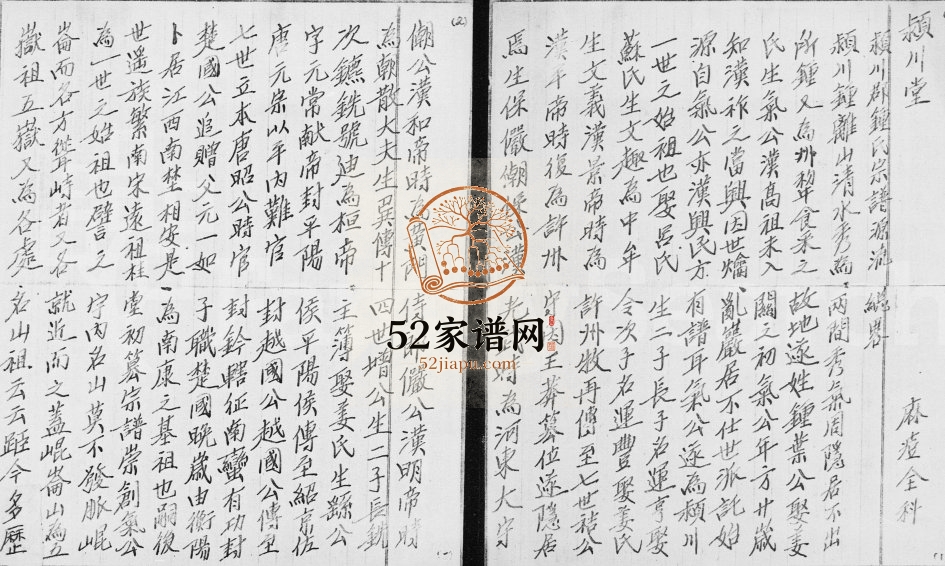 颍川堂
麻瘂全科
颍川郡鍾氏宗譜源流
颍川鍾離山清水秀為两間秀氣周隱居不出
所鍾又為州犂食采之故地遂姓鍾葉公娶姜
氏生氣公漢髙祖未入關之初氣公年方廿歲
知漢祚之當興因世亂巖居不仕世派託始
源自氣公亦漢興氏方有譜耳氣公遂為颍川
一世之始祖也娶呂氏生二子長子名運亨娶
蘇氏生文趣為中牟令次子名運豊娶姜氏
生文義漢景帝時為許州牧再傳至七世秸公
漢平帝時復為許州守王莽篡位遂隱居
焉生保儼僦漢光武時為河東大守
(2)
僦公漢和帝時為黄門侍郎儼公漢明帝時
為朝散大夫生巽傳十四世增公生二子長銑
次鑣銑號迪為桓帝主簿娶姜氏生繇公
字元常献帝封平陽侯平陽侯傳至紹京佐
唐元宗以平内難官封越國公越國公傳至
七世立本唐昭公時官封鈐轄征南蠻有功封
楚國公追贈父元一如子職楚國晚歲由衡陽
卜居江西南埜相安是為南康之基祖也嗣後
世遥族繁南宋遠祖桂堂初纂宗譜崇創氣公
為一世之始祖也譬之宇内名山莫不發脉崐
崙而各方聳峙者又各就近而之蓋崐崙山為五
嶽祖五嶽又為各處名山祖云云距今多歷
52家谱网
52jiapu.com